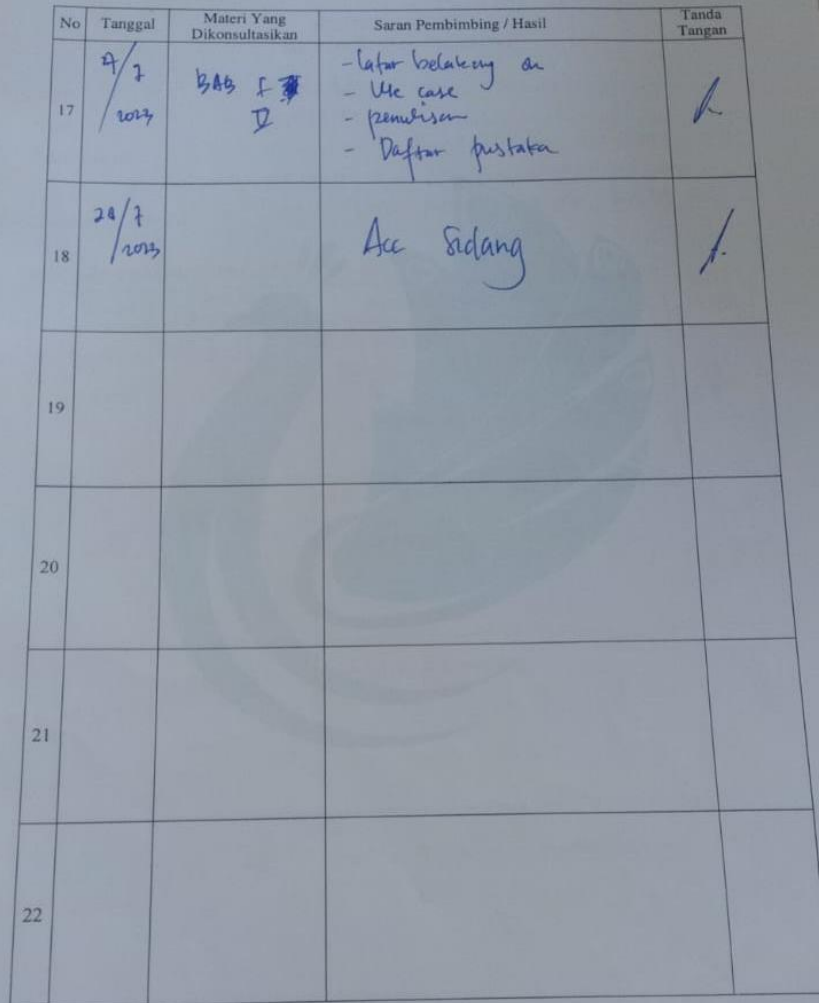 No Tanggal Materi Yang Dikonsultasikan Saran Pembimbing / Hasil Tanda Tangan
17
/7
/2023
BAB I
V
- latar belakang
- Use case
- penulisan
- Daftar pustaka
18
/7
/2023
Acc Sidang
19
20
21
22